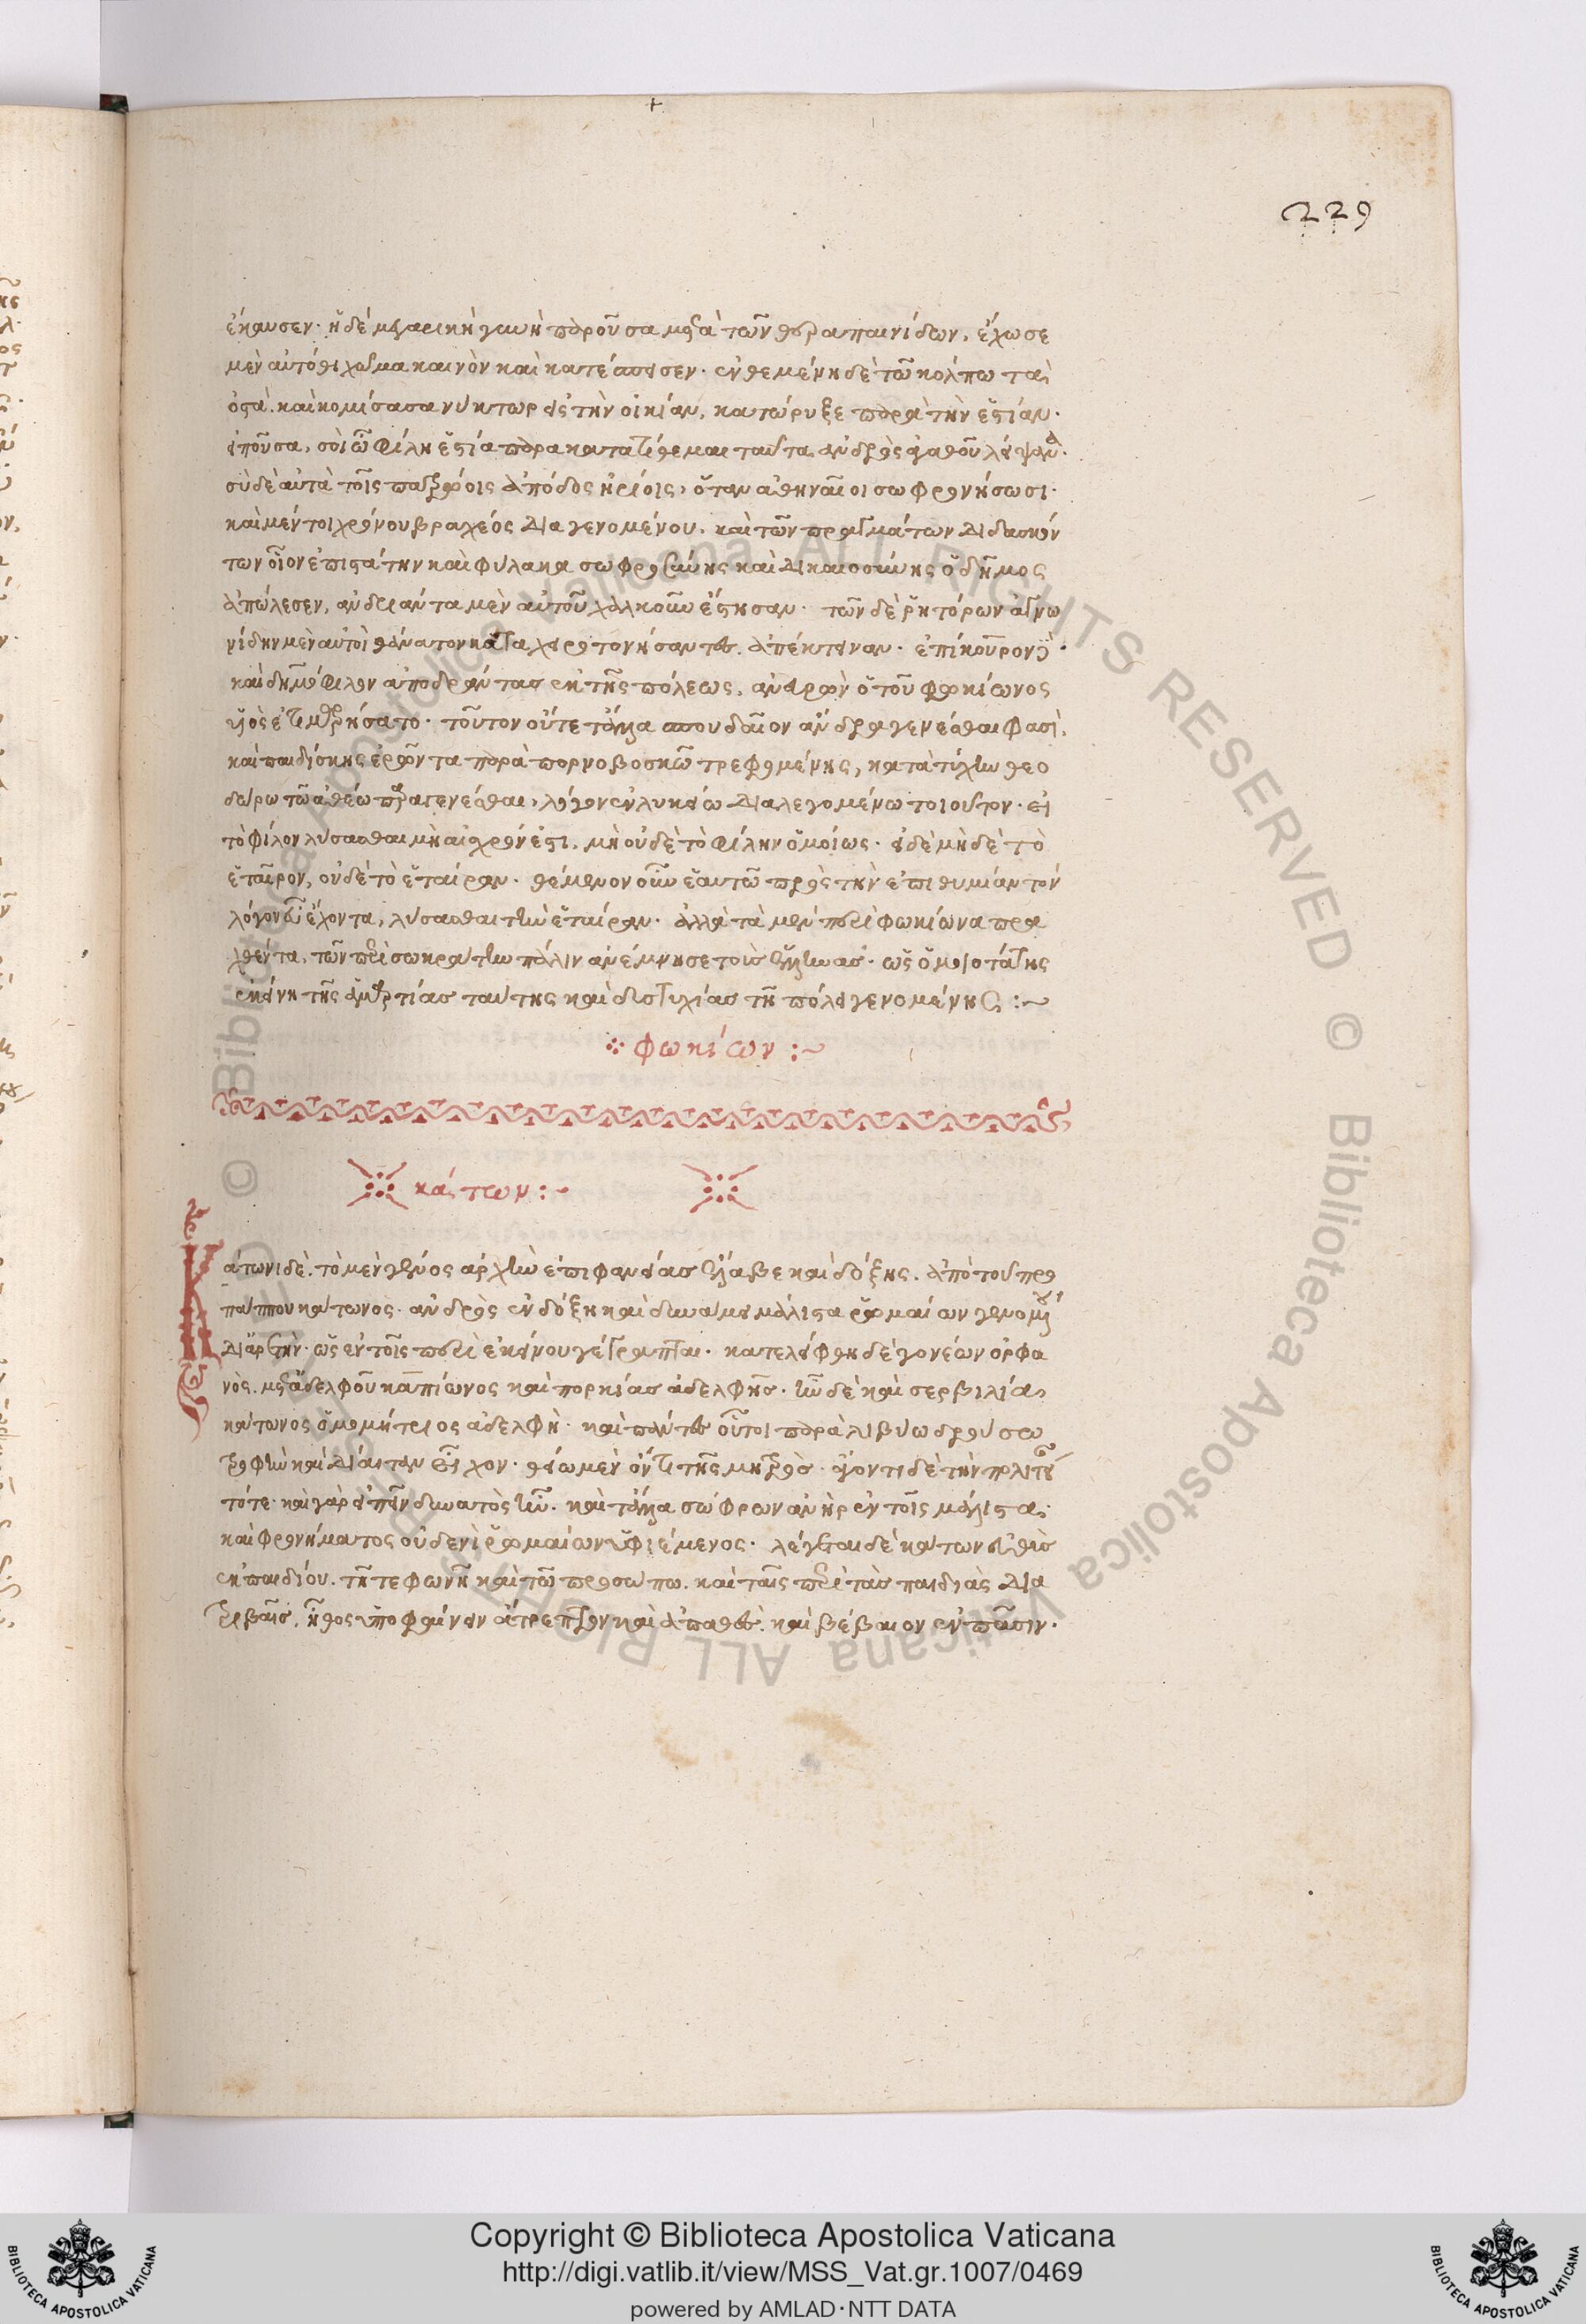 229
ἔκαυσεν· ἡ δὲ μεγαρικὴ γυνὴ παροῦσα μετὰ τῶν θεραπαινίδων, ἔχωσε
μὲν αὐτόθι χῶμα καινὸν καὶ κατέσπεισεν· ἐνθεμένη δὲ τῶ κόλπω τὰ
ὀστᾶ. καὶ κομίσασα νύκτωρ εἰς τὴν οἰκίαν, κατώρυξε παρὰ τὴν ἑστίαν·
εἰποῦσα, σοὶ ὦ φίλη ἑστία παρακατατίθεμαι ταῦτα ἀνδρὸς ἀγαθοῦ λείψανα·
σὺ δὲ αὐτὰ τοῖς πατρώοις ἀπόδος ἠρίοις, ὅταν ἀθηναῖοι σωφρονήσωσι·
καὶ μέντοι χρόνου βραχέος διαγενομένου. καὶ τῶν πραγμάτων διδασκόν
των οἷον ἐπιστάτην καὶ φύλακα σωφροσύνης καὶ δικαιοσύνης ὁ δῆμος
ἀπώλεσεν, ἀνδριάντα μὲν αὐτοῦ χαλκοῦν ἔστησαν· τῶν δὲ ῥητόρων ἁγνω
νίδην μὲν αὐτοὶ θάνατον καταχειροτονήσαντες. ἀπέκτειναν· ἐπίκουρον δὲ
καὶ δημόφιλον ἀποδράντας ἐκ τῆς πόλεως, ἀνευρὼν ὁ τοῦ φωκίωνος
υἱὸς ἐτιμωρήσατο· τοῦτον οὔτε τἆλλα σπουδαῖον ἄνδρα γενέσθαι φασὶ,
καὶ παιδίσκης ἐρῶντα παρὰ πορνοβοσκῶ τρεφομένης, κατὰ τύχην θεο
δώρω τῶ ἀθέω παραγενέσθαι, λόγον ἐν λυκείω διαλεγομένω τοιοῦτον· εἰ
τὸ φίλον λύσασθαι μὴ αἰσχρόν ἐστι, μὴ οὐδὲ τὸ φίλην ὁμοίως· εἰ δὲ μηδὲ τὸ
ἑταῖρον, οὐδὲ τὸ ἑταίραν· θέμενον οὖν ἑαυτῶ πρὸς τὴν ἐπιθυμίαν τὸν
λόγον εὖ ἔχοντα, λύσασθαι τὴν ἑταίραν· ἀλλὰ τὰ μὲν περὶ φωκίωνα πρα
χθέντα, τῶν περὶ σωκράτην πάλιν ἀνέμνησε τοὺς ἕλληνας· ὡς ὁμοιοτάτης
ἐκείνη τῆς ἁμαρτίας ταύτης καὶ δυστυχίας τῆ πόλει γενομένης :~
φωκίων :~
κάτων :~
Κάτωνι δὲ. τὸ μὲν γένος ἀρχὴν ἐπιφανείας ἔλαβε καὶ δόξης. ἀπὸ τοῦ προ
πάππου κάτωνος· ἀνδρὸς ἐν δόξη καὶ δυνάμει μάλιστα ῥωμαίων γενομένου
δι' ἀρετὴν· ὡς ἐν τοῖς περὶ ἐκείνου γέγραπται· κατελείφθη δὲ γονέων ὀρφα
νὸς. μετ' ἀδελφοῦ καπίωνος καὶ πορκίας ἀδελφῆς· ἦν δὲ καὶ σερβιλία
κάτωνος ὁμομήτριος ἀδελφὴ· καὶ πάντες οὗτοι παρὰ λιβύω δρούσω
τροφὴν καὶ δίαιταν εἶχον· θείω μὲν ὄντι τῆς μητρὸς· ἄγοντι δὲ τὴν πολιτείαν
τότε· καὶ γὰρ εἰπεῖν δυνατὸς ἦν. καὶ τἆλλα σώφρων ἀνὴρ ἐν τοῖς μάλιστα,
καὶ φρονήματος οὐδενὶ ῥωμαίων ὑφιέμενος· λέγεται δὲ κάτων εὐθὺς
ἐκ παιδίου. τῆ τε φωνῆ καὶ τῶ προσώπω. καὶ ταῖς περὶ τὰς παιδιὰς δια
τριβαῖς, ἦθος ὑποφαίνειν ἄτρεπτον καὶ ἀπαθὲς. καὶ βέβαιον ἐν πᾶσιν·
Copyright © Biblioteca Apostolica Vaticana
http://digi.vatlib.it/view/MSS_Vat.gr.1007/0469
powered by AMLAD·NTT DATA